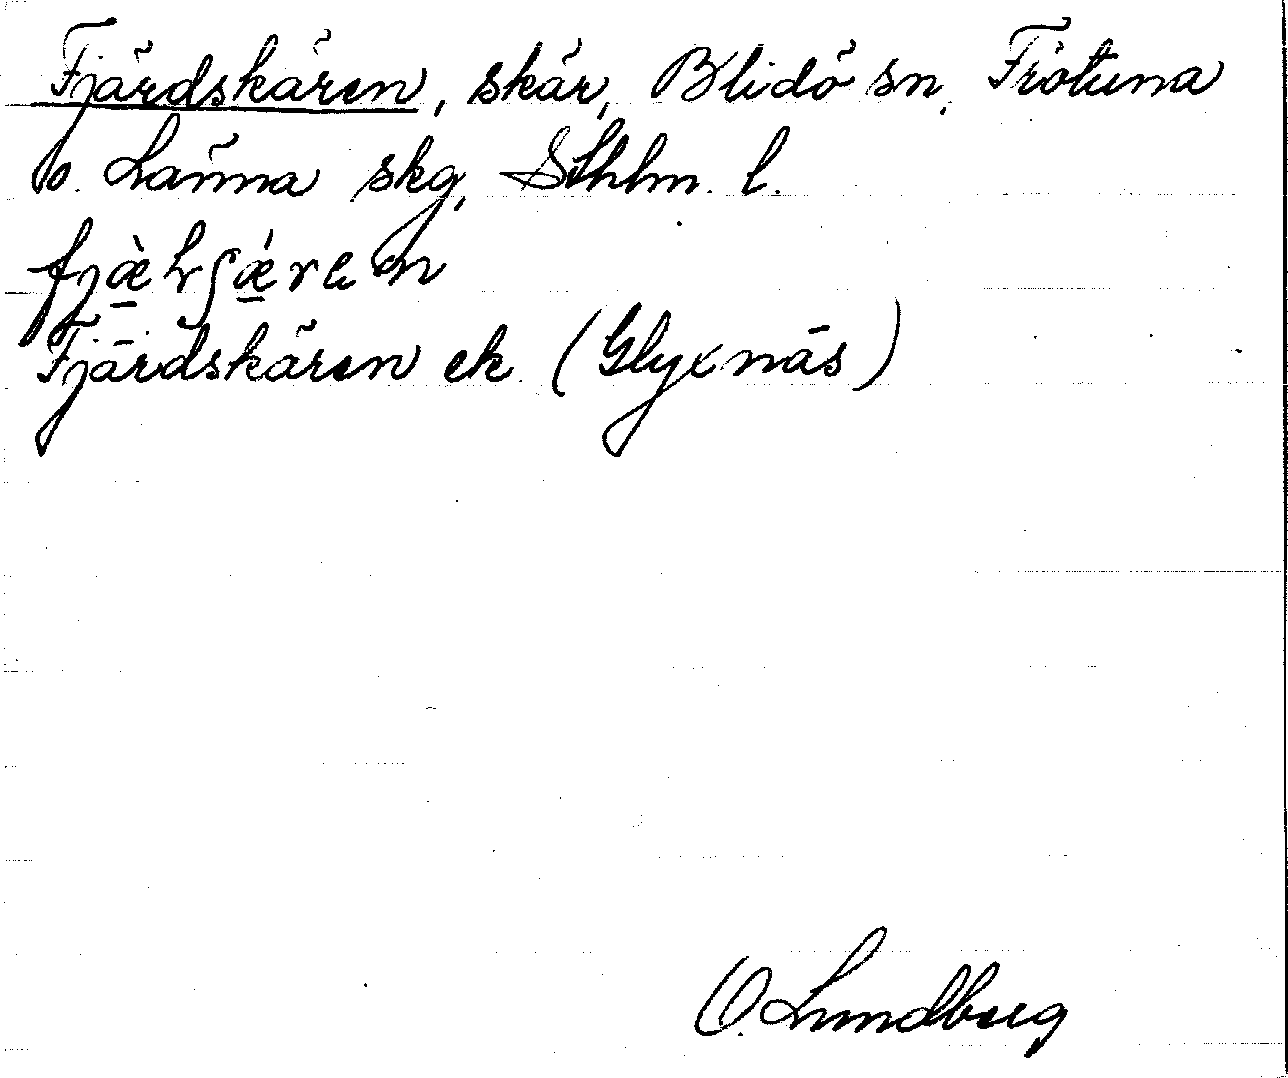 Fjärdskären, skär, Blidö sn, Frötuna
o. Länna skg, Sthlm. l.
Fjärdskären ek. (Glyxnäs)
O. Lundberg